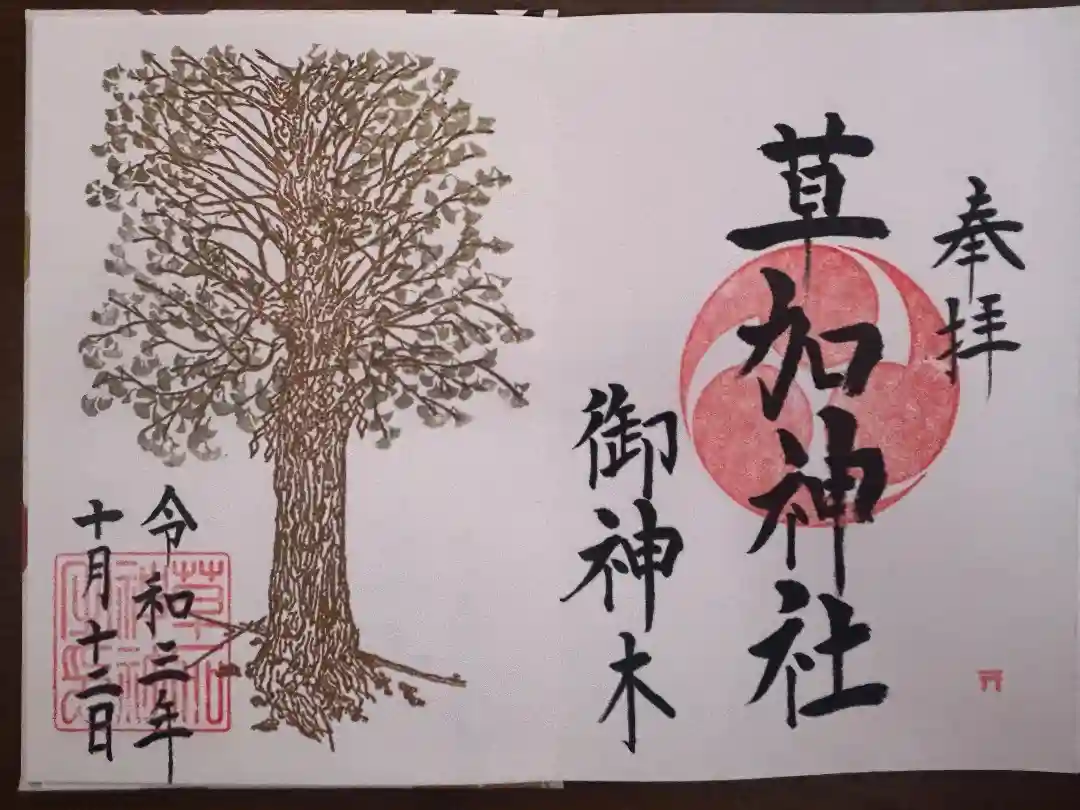 奉拝
草加神社
御神木
令和三年
十月十二日